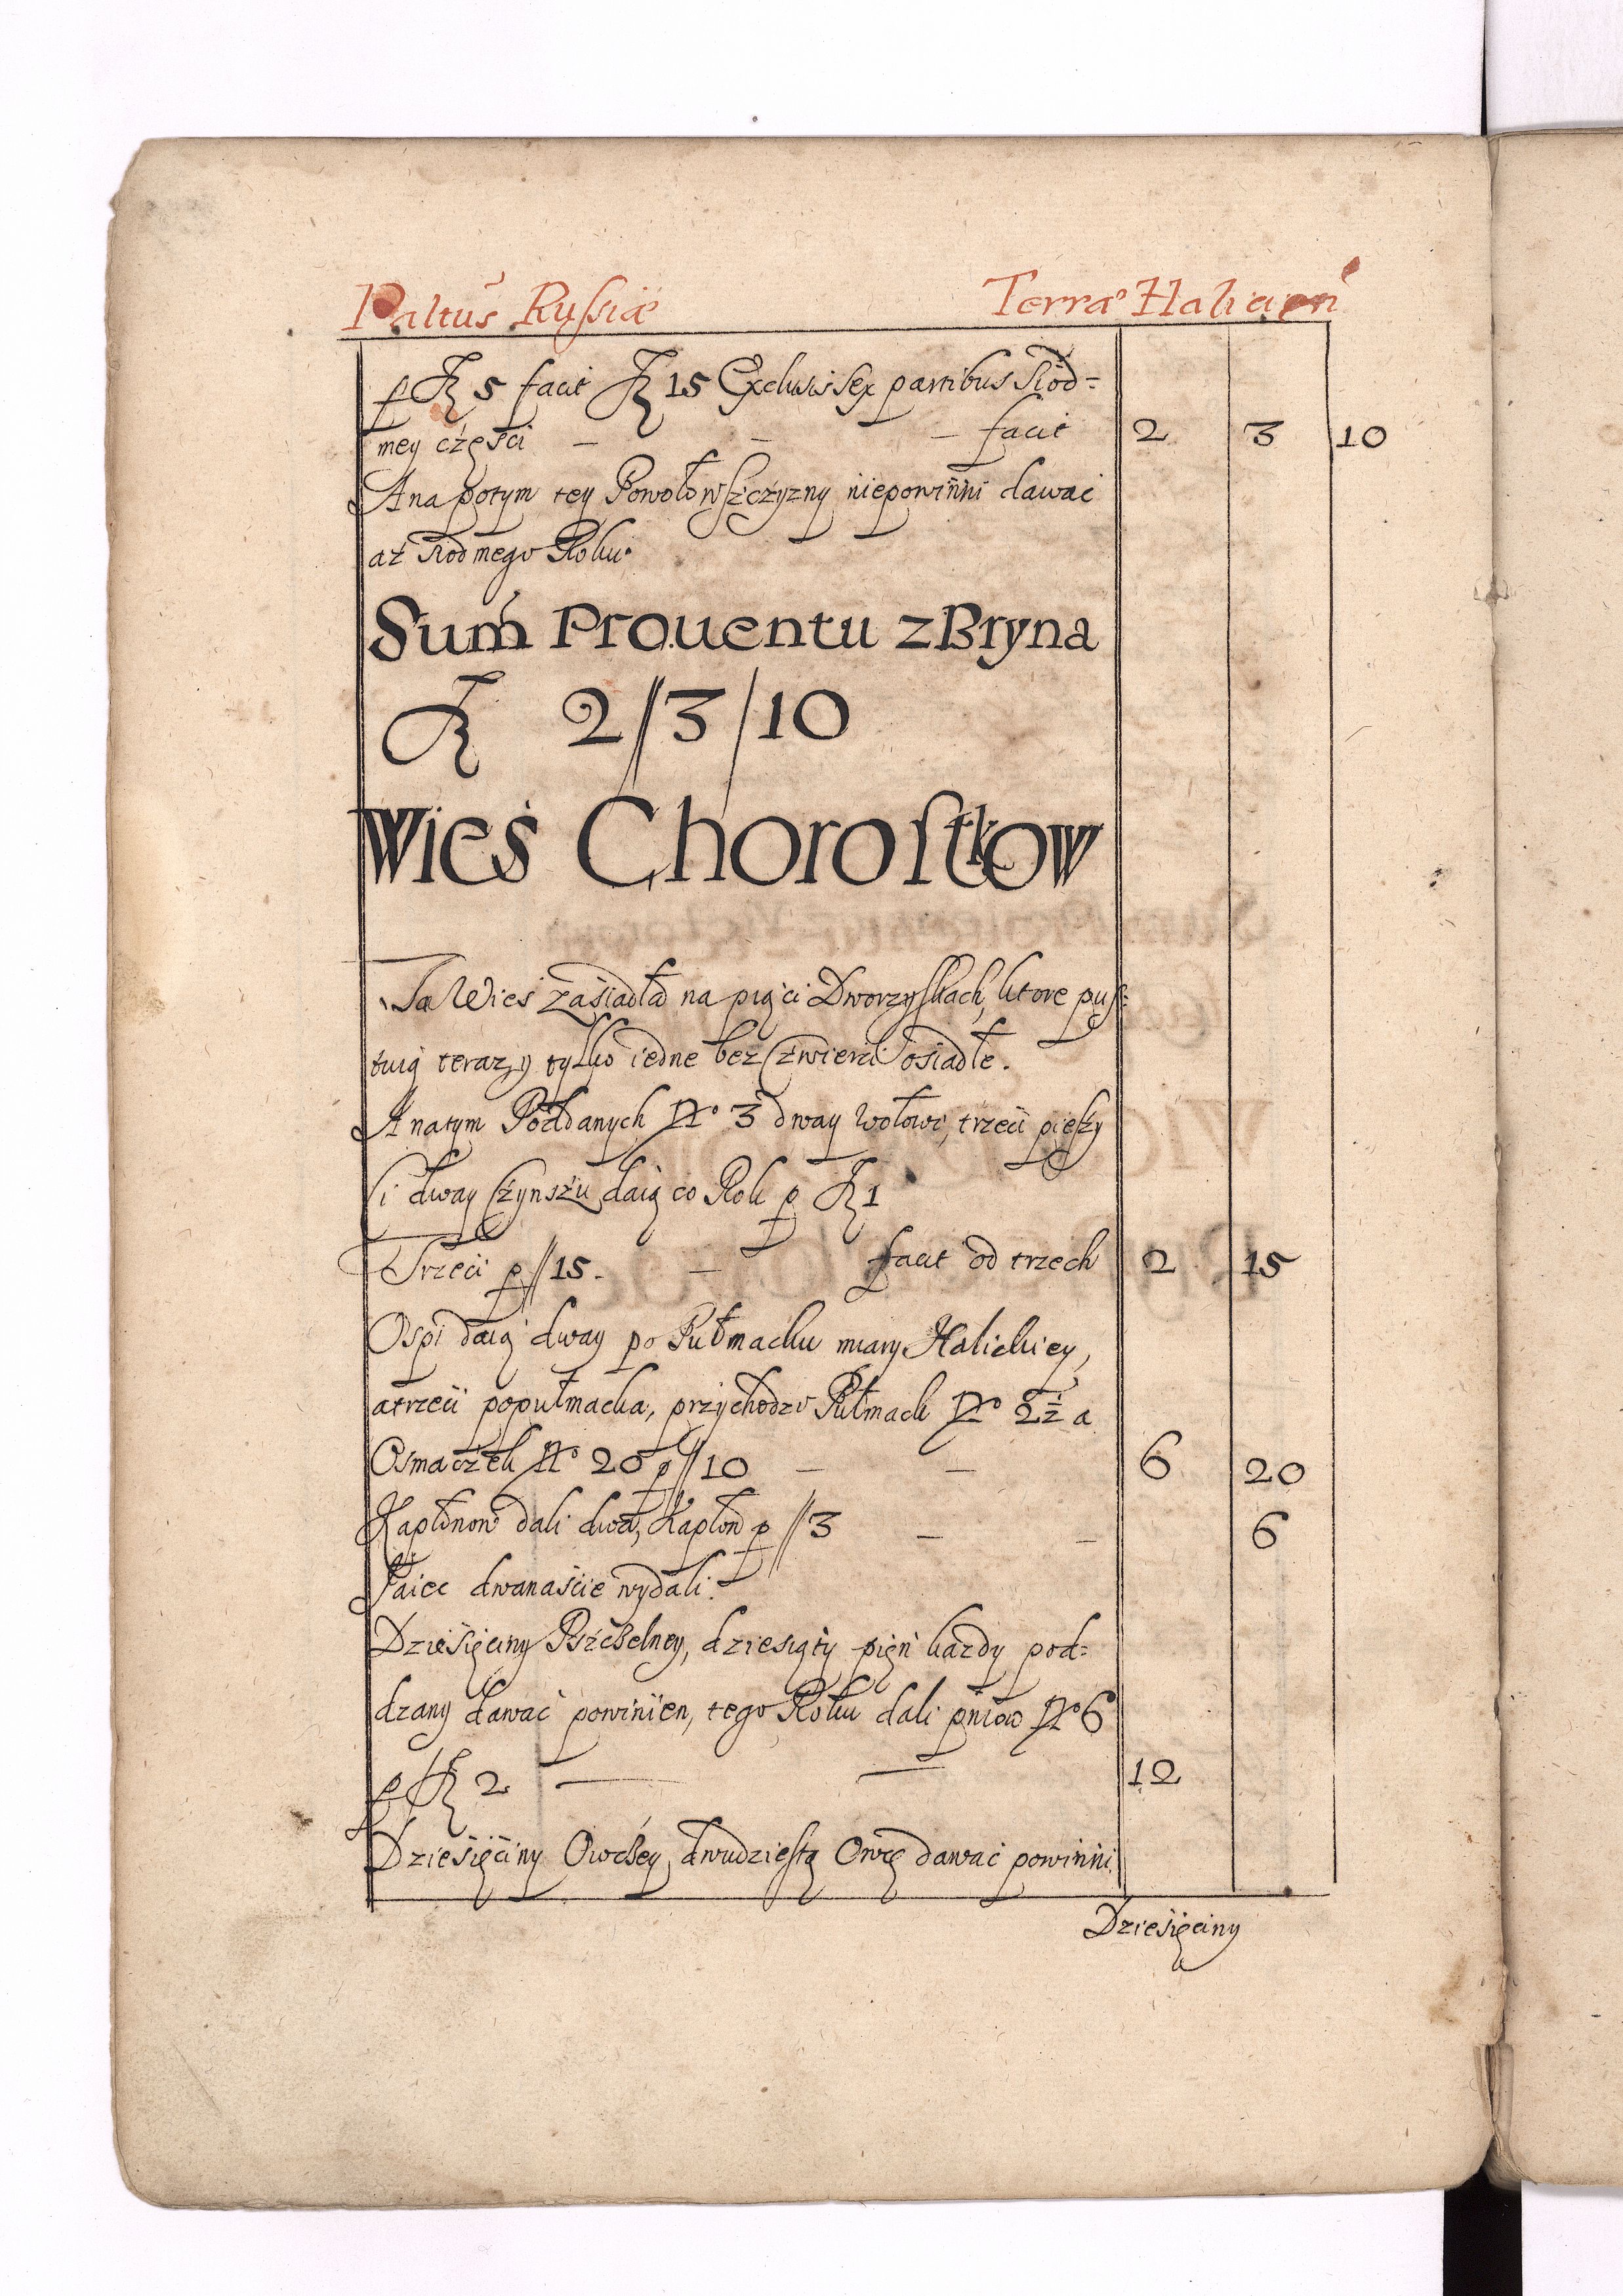 Paltus Russiæ Terræ Haliciен
p fl 5 facit fl 15 Exclusis sex partibus siod=
mey części — — — facit 2 3 10
A napotym tey Powołowszczyzny niepowinni dawac
aż siodmego Roku.
Sum̄ Prouentu z Bryna
fl 2//3/10
Wieś Chorostkow
Ta Wieś zasiadła na piąci Dworzyskach, ktore pus=
tuią teraz, y tylko iedne bez Czwierci osiadłe.
A natym Poddanych No 3 dway wołowi, trzeci pieszy
Ci dway Czynszu daią co Rok p fl 1
Trzeci p // 15. — facit od trzech 2 15
Ospi daią dway po Pułmacku miary Halickiey,
a trzeci popułmacka, przychodzi Pułmack No 2½ a
Osmaczek No 20 p // 10 — — 6 20
Kapłonow dali dwa, Kapłon p // 3 — — 6
Jaiec dwanaście wydali.
Dziesięciny Pszczelney, dziesiąty pień kazdy pod=
dzany dawać powinien, tego Roku dali pniow No 6
p fl 2 — — 12
Dziesięciny Owczey, dwudziestą Owcę dawać powinni.
Dziesięciny